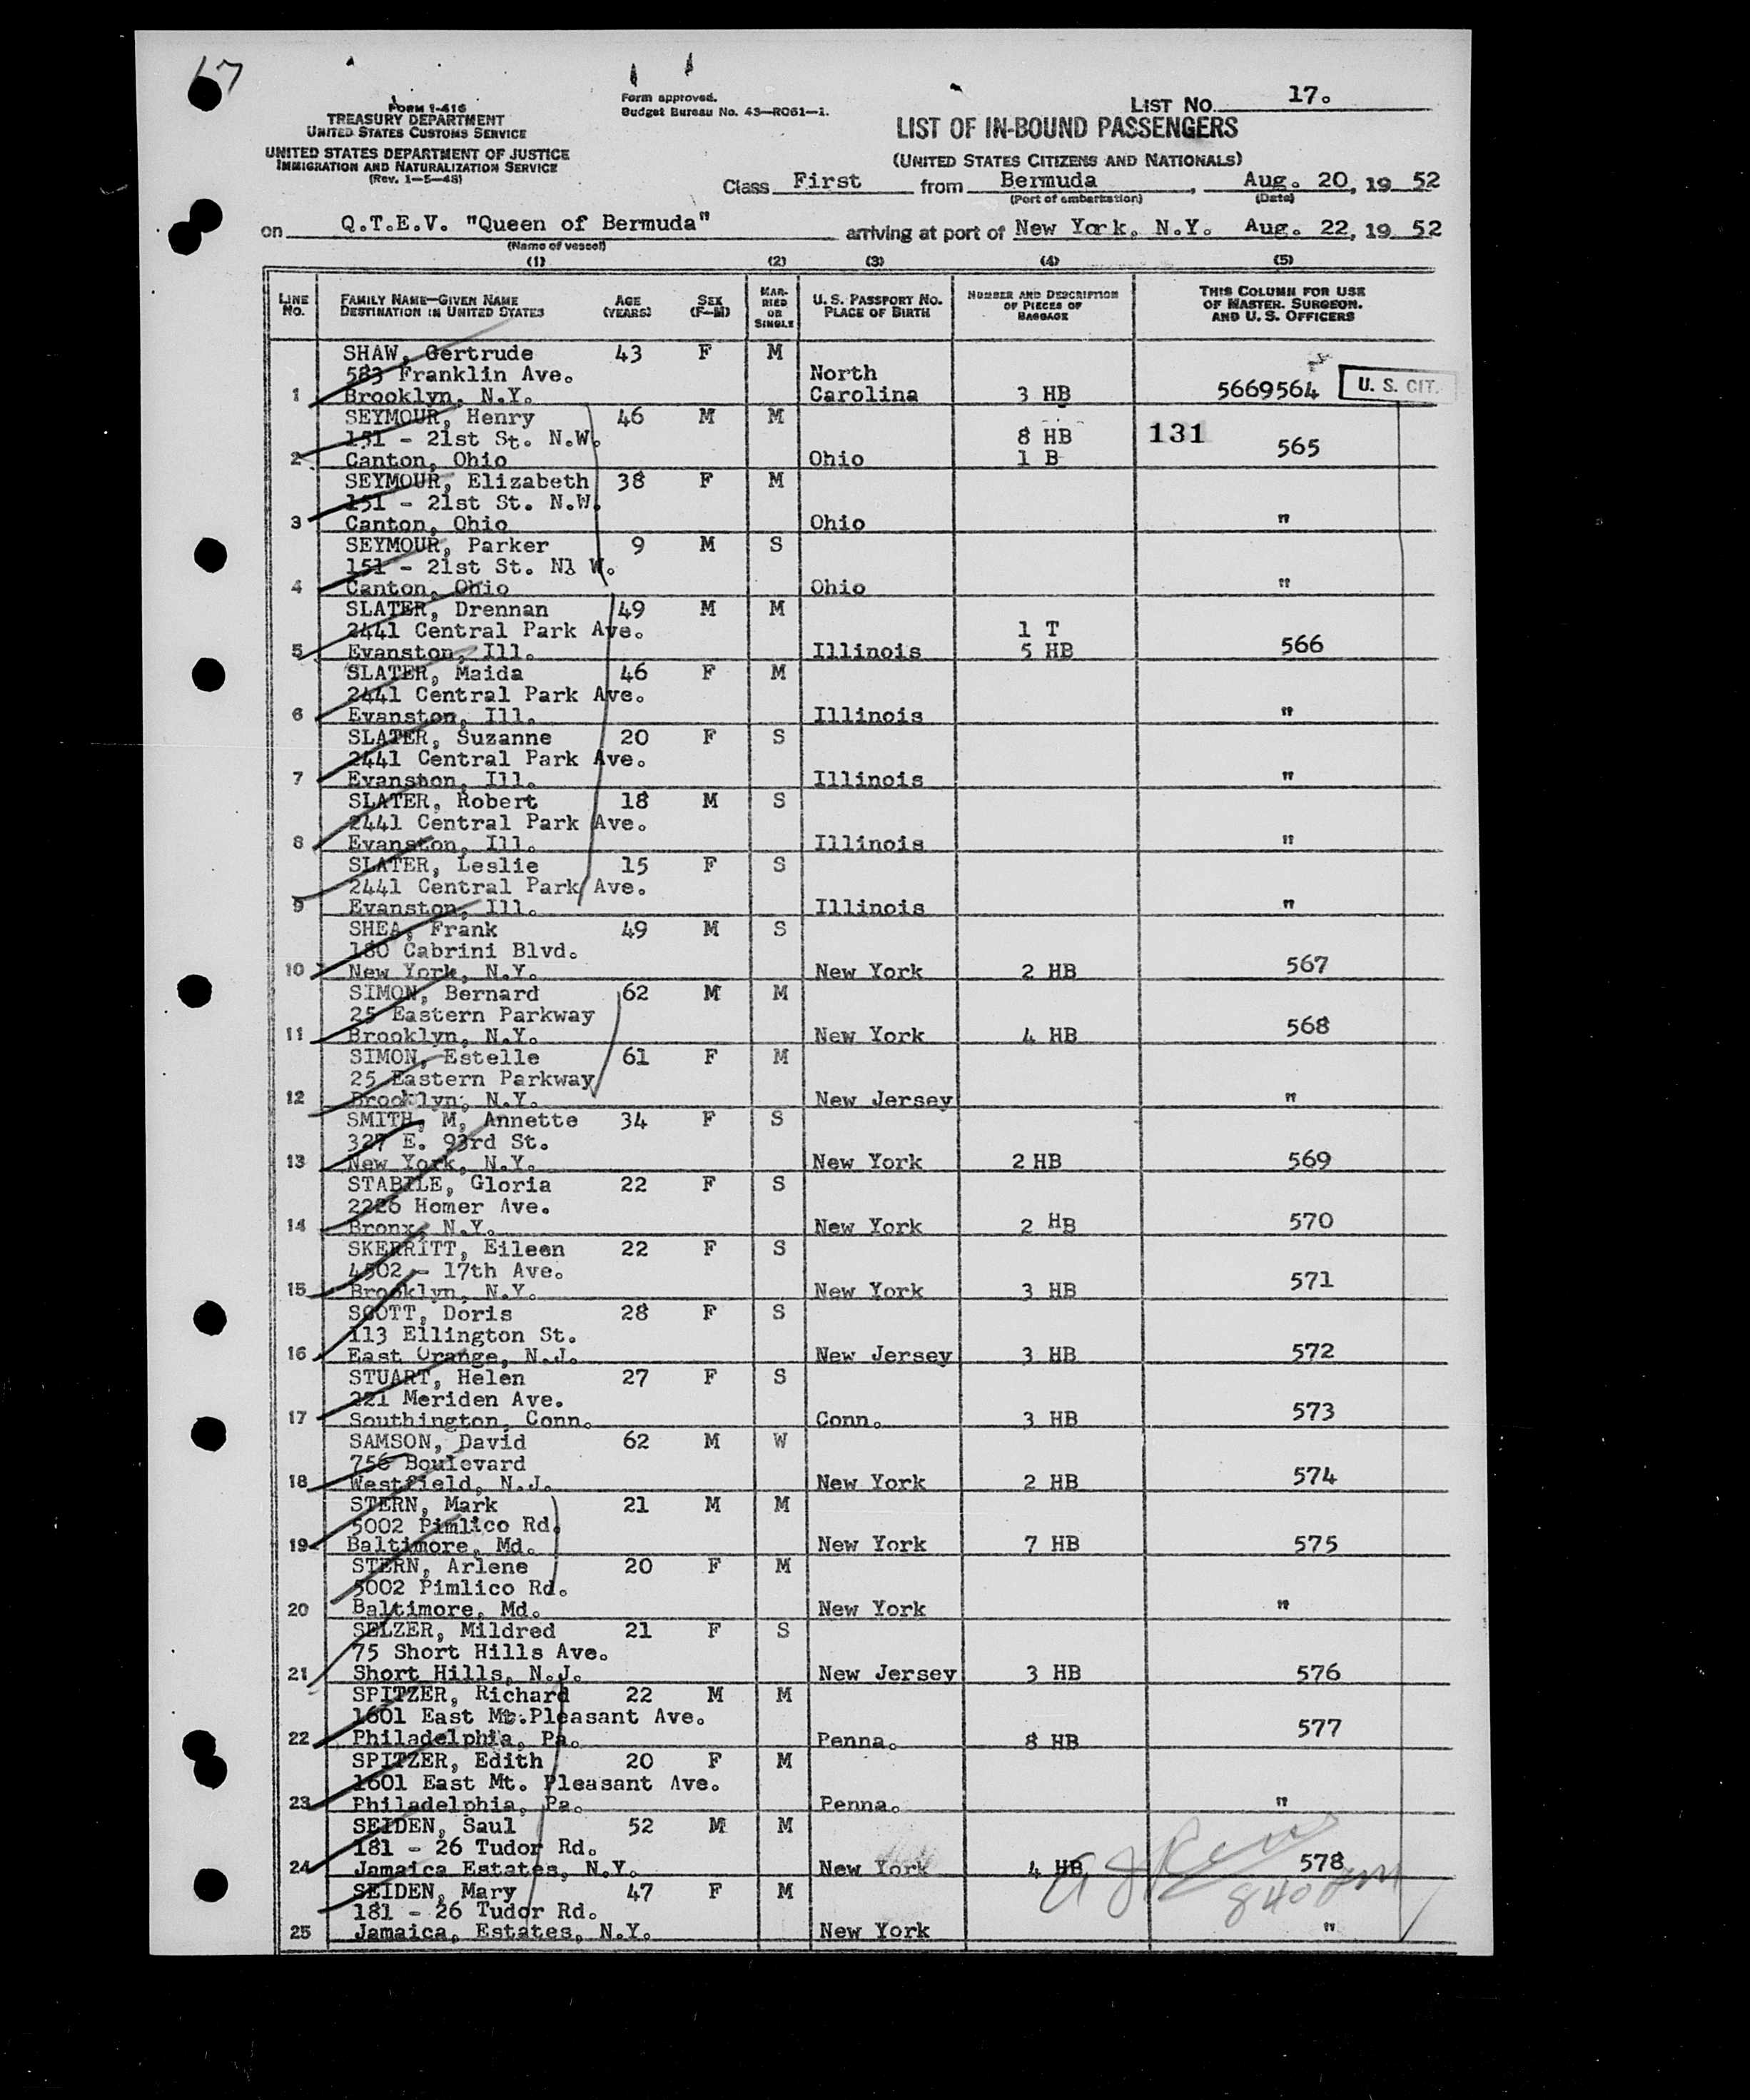 67
FORM I-416
TREASURY DEPARTMENT
UNITED STATES CUSTOMS SERVICE
UNITED STATES DEPARTMENT OF JUSTICE
IMMIGRATION AND NATURALIZATION SERVICE
(Rev. 1-5-48)
Form approved.
Budget Bureau No. 43-R061-1.
LIST NO. 17.
LIST OF IN-BOUND PASSENGERS
(UNITED STATES CITIZENS AND NATIONALS)
Class First from Bermuda, Aug. 20, 19 52
(Port of embarkation) (Date)
on Q.T.E.V. "Queen of Bermuda" arriving at port of New York, N.Y. Aug. 22, 19 52
(Name of vessel)
(1) (2) (3) (4) (5)
LINE NO. FAMILY NAME—GIVEN NAME DESTINATION IN UNITED STATES AGE (YEARS) SEX (F-M) MARRIED OR SINGLE U. S. PASSPORT NO. PLACE OF BIRTH NUMBER AND DESCRIPTION OF PIECES OF BAGGAGE THIS COLUMN FOR USE OF MASTER, SURGEON, AND U. S. OFFICERS
SHAW, Gertrude 43 F M
583 Franklin Ave. North
1 Brooklyn, N.Y. Carolina 3 HB 5669564 U. S. CIT.
SEYMOUR, Henry 46 M M
151 - 21st St. N.W. 8 HB 131
2 Canton, Ohio Ohio 1 B 565
SEYMOUR, Elizabeth 38 F M
151 - 21st St. N.W.
3 Canton, Ohio Ohio "
SEYMOUR, Parker 9 M S
151 - 21st St. Nl W.
4 Canton, Ohio Ohio "
SLATER, Drennan 49 M M
2441 Central Park Ave. 1 T
5 Evanston, Ill. Illinois 5 HB 566
SLATER, Maida 46 F M
2441 Central Park Ave.
6 Evanston, Ill. Illinois "
SLATER, Suzanne 20 F S
2441 Central Park Ave.
7 Evanston, Ill. Illinois "
SLATER, Robert 18 M S
2441 Central Park Ave.
8 Evanston, Ill. Illinois "
SLATER, Leslie 15 F S
2441 Central Park Ave.
9 Evanston, Ill. Illinois "
SHEA, Frank 49 M S
180 Cabrini Blvd.
10 New York, N.Y. New York 2 HB 567
SIMON, Bernard 62 M M
25 Eastern Parkway
11 Brooklyn, N.Y. New York 4 HB 568
SIMON, Estelle 61 F M
25 Eastern Parkway
12 Brooklyn, N.Y. New Jersey "
SMITH, M, Annette 34 F S
327 E. 93rd St.
13 New York, N.Y. New York 2 HB 569
STABILE, Gloria 22 F S
2226 Homer Ave.
14 Bronx, N.Y. New York 2 HB 570
SKERRITT, Eileen 22 F S
4502 - 17th Ave.
15 Brooklyn, N.Y. New York 3 HB 571
SCOTT, Doris 28 F S
113 Ellington St.
16 East Orange, N.J. New Jersey 3 HB 572
STUART, Helen 27 F S
221 Meriden Ave.
17 Southington, Conn. Conn. 3 HB 573
SAMSON, David 62 M W
756 Boulevard
18 Westfield, N.J. New York 2 HB 574
STERN, Mark 21 M M
5002 Pimlico Rd.
19 Baltimore, Md. New York 7 HB 575
STERN, Arlene 20 F M
5002 Pimlico Rd.
20 Baltimore, Md. New York "
SELZER, Mildred 21 F S
75 Short Hills Ave.
21 Short Hills, N.J. New Jersey 3 HB 576
SPITZER, Richard 22 M M
1601 East Mt.Pleasant Ave.
22 Philadelphia, Pa. Penna. 8 HB 577
SPITZER, Edith 20 F M
1601 East Mt. Pleasant Ave.
23 Philadelphia, Pa. Penna. "
SEIDEN, Saul 52 M M
181 - 26 Tudor Rd.
24 Jamaica Estates, N.Y. New York 4 HB 578
SEIDEN, Mary 47 F M
181 - 26 Tudor Rd. 840
25 Jamaica, Estates, N.Y. New York "